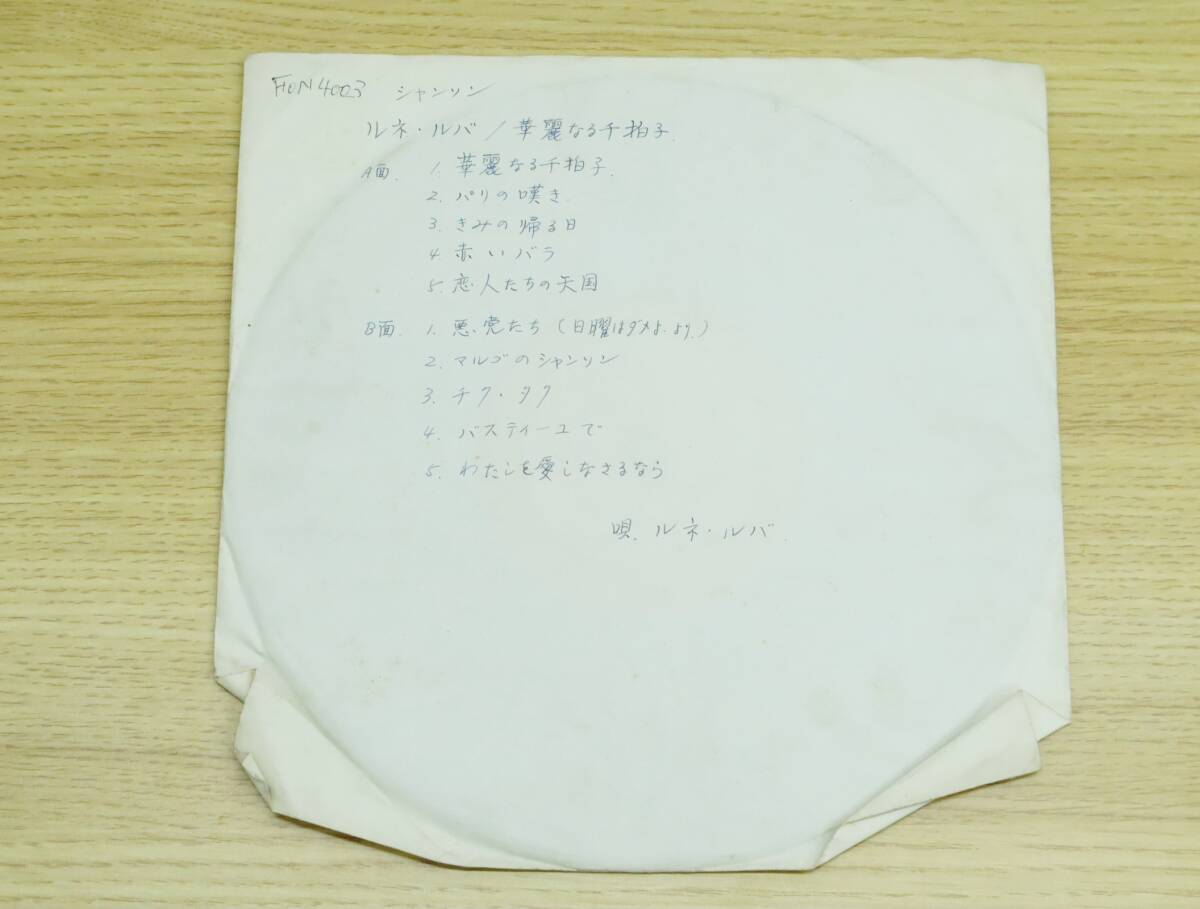 FON4003 シャンソン
ルネ・ルバ/華麗なる千拍子.
A面. 1. 華麗なる千拍子.
2. パリの嘆き.
3. きみの帰る日
4. 赤いバラ
5. 恋人たちの天国
B面. 1. 悪党たち (日曜はダメよ.より.)
2. マルゴのシャンソン
3. チク・タク
4. バスティーユで
5. わたしを愛しなさるなら
唄. ルネ・ルバ.